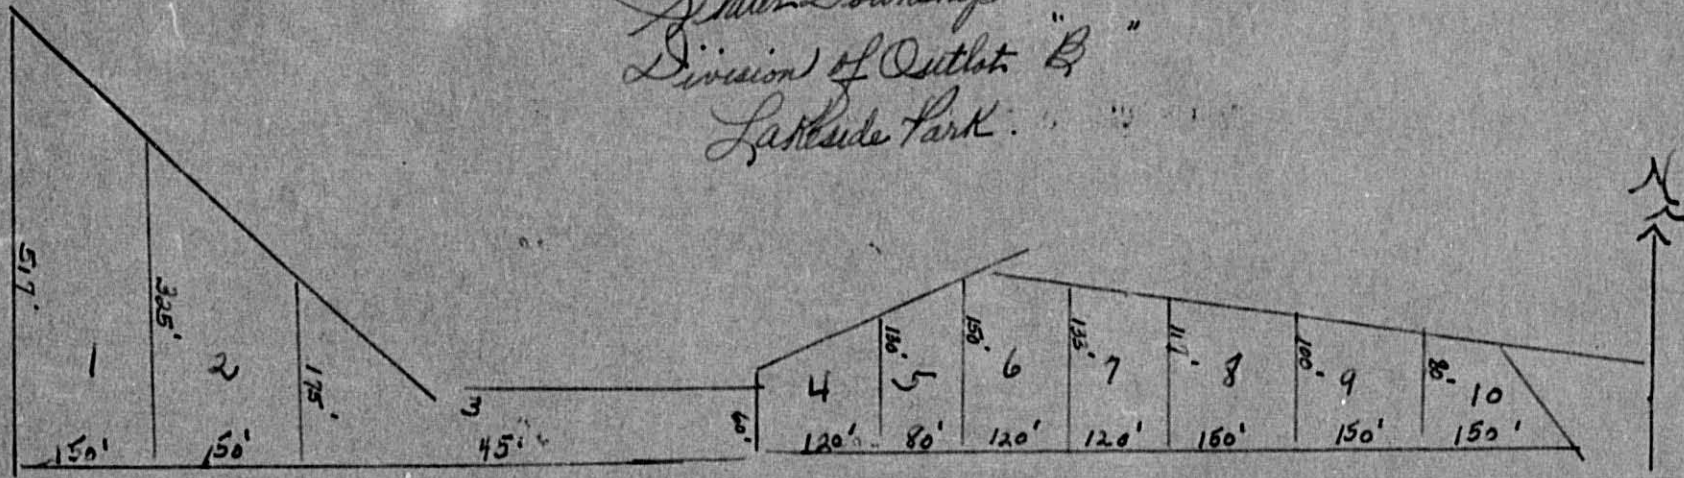 Township
Division of Outlot "B"
Lakeside Park.
N
517'
325'
175'
1
2
3
150'
150'
45'
60'
4
5
6
7
8
9
10
130'
150'
133'
117'
100'
80'
120'
80'
120'
120'
150'
150'
150'